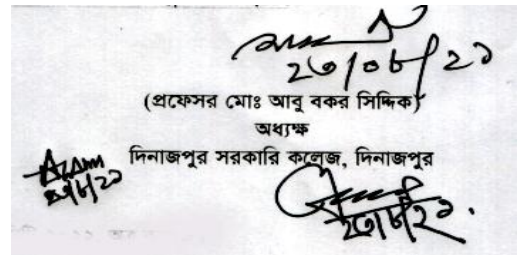 ২৩/০৮/২১
(প্রফেসর মোঃ আবু বকর সিদ্দিক)
অধ্যক্ষ
দিনাজপুর সরকারি কলেজ, দিনাজপুর
২৩/৮/২১.